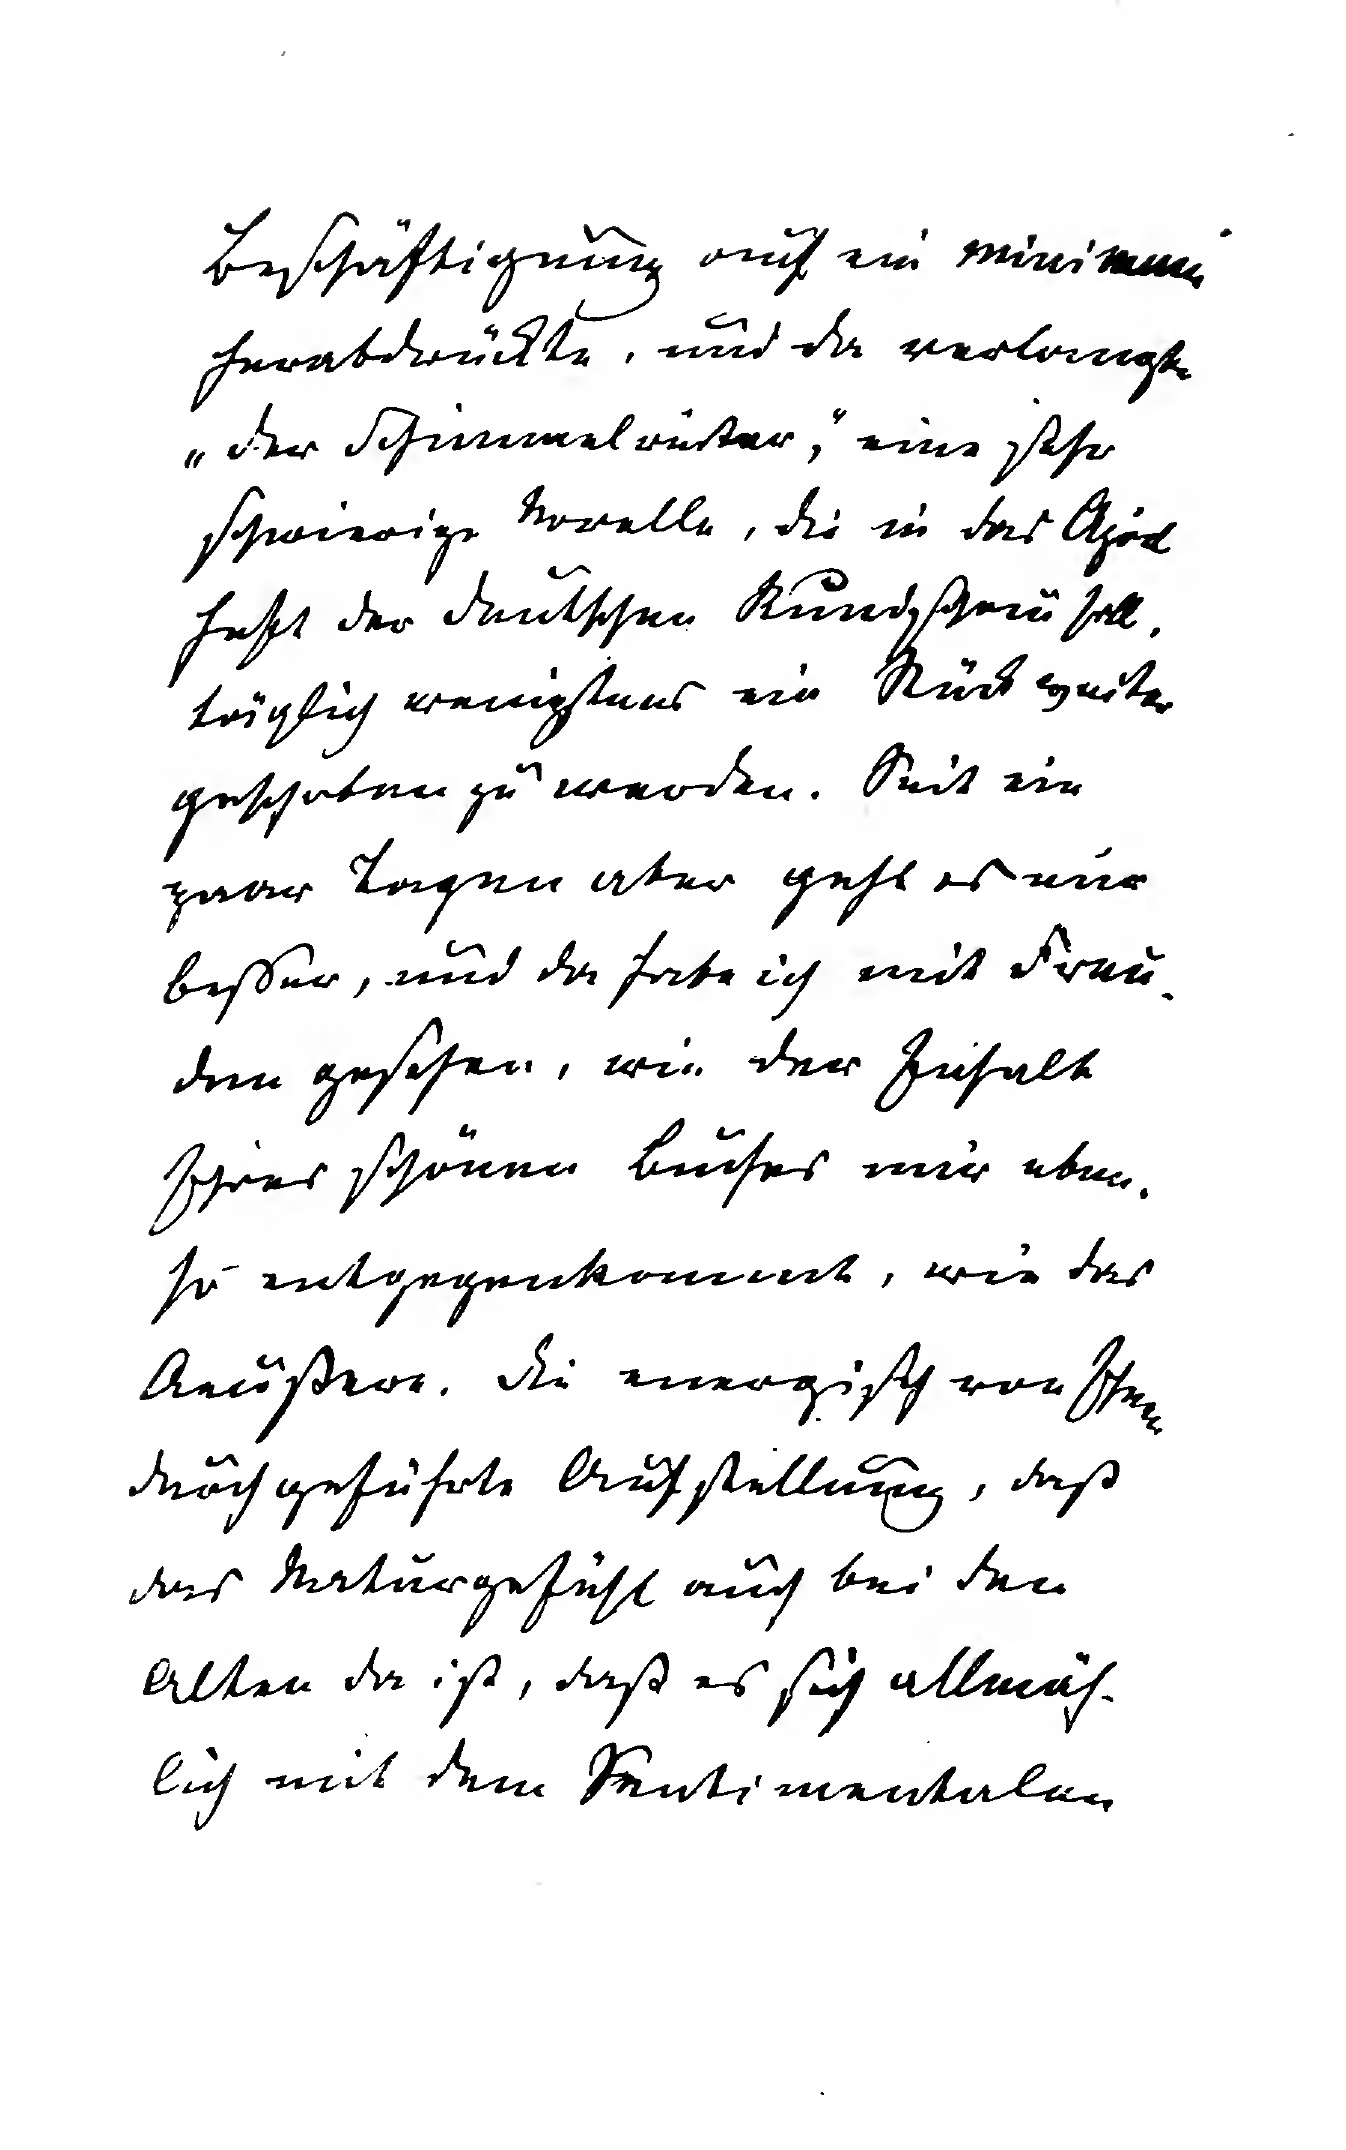 Beschäftigung auf ein minimum
herabdrückte, und da verlangte
„der Schimmelreiter,“ eine sehr
schwierige Novelle, die in das April
heft der deutschen Rundschau soll,
täglich wenigstens ein Stück weiter
geschoben zu werden. Seit ein
paar Tagen aber geht es mir
besser, und da habe ich mit Freu-
den gesehen, wie der Inhalt
Ihres schönen Buches mir eben-
so entgegenkommt, wie das
Aeußere. Die energisch von Ihnen
durchgeführte Aufstellung, daß
das Naturgefühl auch bei den
Alten da ist, daß es sich allmäh-
lich mit dem Sentimentalen